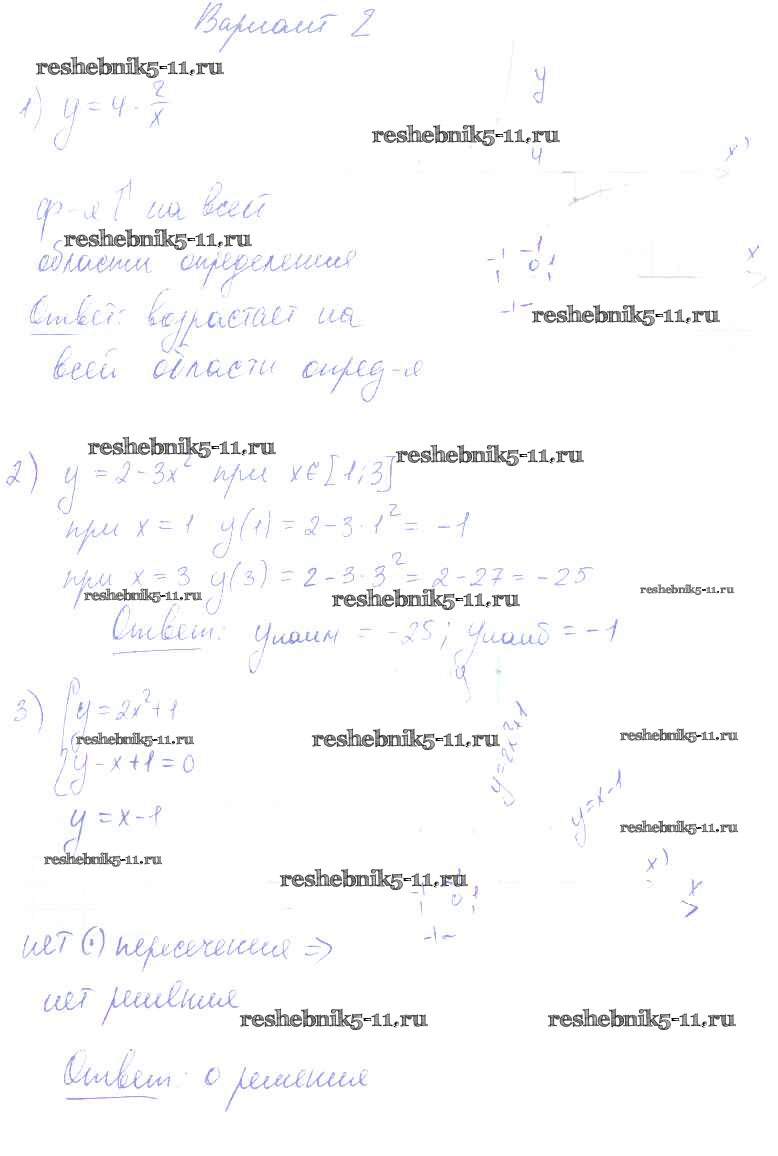 Вариант 2
reshebnik5-11.ru
1) y = 4 · 2/x
y
reshebnik5-11.ru
4
x)
ф-я ↑ на всей
reshebnik5-11.ru
области определения
-1
0 1
x
Ответ: возрастает на
reshebnik5-11.ru
всей области опред-я
reshebnik5-11.ru
reshebnik5-11.ru
2) y = 2 - 3x² при x ∈ [1;3]
при x = 1 y(1) = 2 - 3 · 1² = -1
при x = 3 y(3) = 2 - 3 · 3² = 2 - 27 = -25
reshebnik5-11.ru
reshebnik5-11.ru
reshebnik5-11.ru
Ответ: yнаим = -25; yнаиб = -1
y
3) { y = 2x² + 1
y = 2x² + 1
reshebnik5-11.ru
reshebnik5-11.ru
reshebnik5-11.ru
y - x + 1 = 0
y = x - 1
y = x - 1
reshebnik5-11.ru
reshebnik5-11.ru
reshebnik5-11.ru
x)
0 1
x
нет (·) пересечения ⇒
нет решения
reshebnik5-11.ru
reshebnik5-11.ru
Ответ: 0 решения